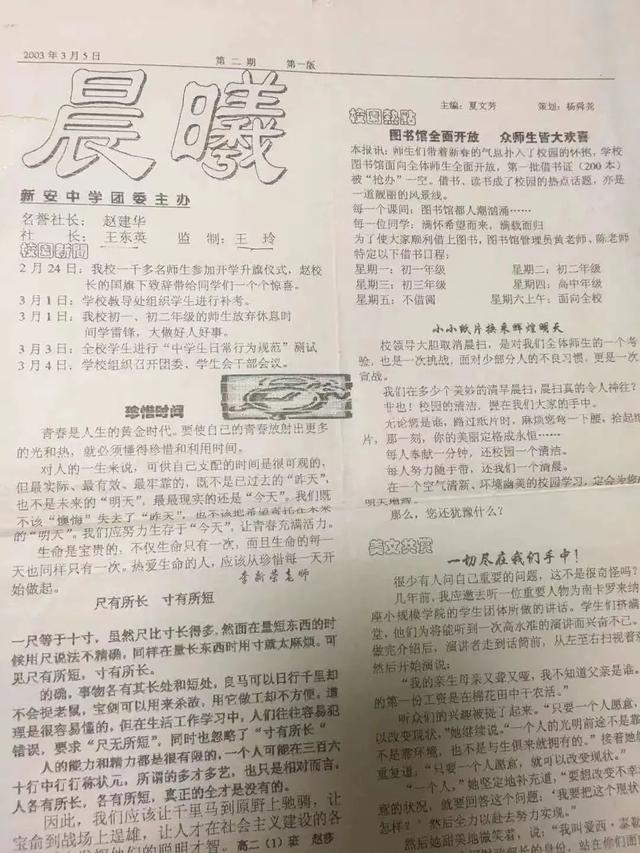 2003年3月5日 第二期 第一版
晨曦
新安中学团委主办
名誉社长：赵建华
社 长：王东英 监 制：王 玲
校园新闻
2月24日：我校一千多名师生参加开学升旗仪式，赵校
长的国旗下致辞带给同学们一个个惊喜。
3月1日：学校教导处组织学生进行补考。
3月1日：我校初一、初二年级的师生放弃休息时
间学雷锋，大做好人好事。
3月3日：全校学生进行“中学生日常行为规范”测试
3月4日：学校组织召开团委、学生会干部会议。
珍惜时间
青春是人生的黄金时代。要使自己的青春放射出更多
的光和热，就必须懂得珍惜和利用时间。
对人的一生来说，可供自己支配的时间是很可观的，
但最实际、最有效、最牢靠的，既不是已过去的“昨天”，
也不是未来的“明天”，最最现实的还是“今天”。我们既
不该“懊悔”失去了“昨天”，也不该把希望寄托在未来
的“明天”。我们应努力生存于“今天”，让青春充满活力。
生命是宝贵的，不仅生命只有一次，而且生命的每一
天也同样只有一次。热爱生命的人，应该从珍惜每一天开
始做起。 李新荣老师
尺有所长 寸有所短
一尺等于十寸，虽然尺比寸长得多，然而在量短东西的时
候用尺说法不精确，同样在量长东西时用寸就太麻烦。可
见尺有所短，寸有所长。
的确，事物各有其长处和短处，良马可以日行千里却
不会捉老鼠，宝剑可以用来杀敌，用它做工却不方便。道
理是很容易懂的，但在生活工作学习中，人们往往容易犯
错误，要求“尺无所短”，同时也忽略了“寸有所长”
人的能力和精力都是很有限的，一个人可能在三百六
十行中行行称状元，所谓的多才多艺，也只是相对而言，
人各有所长，各有所短，真正的全才是没有的。
因此，我们应该让千里马到原野上驰骋，让
宝剑到战场上逞雄，让人才在社会主义建设的各
发挥他们的聪明才智。高二（1）班 赵莎
主编：夏文芳 策划：杨舜尧
校园热点
图书馆全面开放 众师生皆大欢喜
本报讯：师生们带着新春的气息扑入了校园的怀抱，学校
图书馆面向全体师生全面开放，第一批借书证（200本）
被“抢办”一空。借书、读书成了校园的热点话题，亦是
一道靓丽的风景线。
每一个课间：图书馆都人潮汹涌……
每一位同学：满怀希望而来，满载而归
为了使大家顺利借上图书，图书馆管理员黄老师、陈老师
特定以下借书日程：
星期一：初一年级 星期二：初二年级
星期三：初三年级 星期四：高中年级
星期五：不借阅 星期六上午：面向全校
小小纸片换来辉煌明天
校领导大胆取消晨扫，是对我们全体师生的一个考
验，也是一次挑战，面对少部分人的不良习惯，更是一次
宣战。
我们在多少个美妙的清早晨扫，晨扫真的令人神往？
非也！校园的清洁，握在我们大家的手中。
无论您是谁，路过纸片时，麻烦您弯一下腰，拾起纸
片，那一刻，你的美丽定格成永恒……
每人奉献一分钟，还校园一个清洁。
每人努力随手带，还我们一个清晨。
在一个空气清新、环境幽美的校园学习，定会为您
明天增辉
那么，您还犹豫什么？
美文共赏
一切尽在我们手中！
很少有人问自己重要的问题，这不是很奇怪吗？
几年前，我应邀去听一位重要人物为南卡罗来纳
座小规模学院的学生团体所做的讲话。学生们挤满
堂，他们为将能听到一次高水准的演讲而兴奋不已。
做完介绍后，演讲者走到话筒前，从左至右扫视着
然后开始演说：
“我的亲生母亲又聋又哑，我不知道父亲是谁。
的第一份工资是在棉花田中干农活。”
听众们的兴趣被提了起来。“只要一个人愿意，
以改变现状，”她继续说。“一个人的光明前途不是靠
不是靠环境，也不是与生俱来就拥有的。”接着她
重复道，“只要一个人愿意，就可以改变现状。”
“一个人，”她坚定地补充道，“要想改变不幸
意的状况，就要回答这个问题：‘我要把这个现状
怎样？’然后全力以赴去努力实现。”
然后她甜美地微笑着，说：“我叫爱西·泰勒